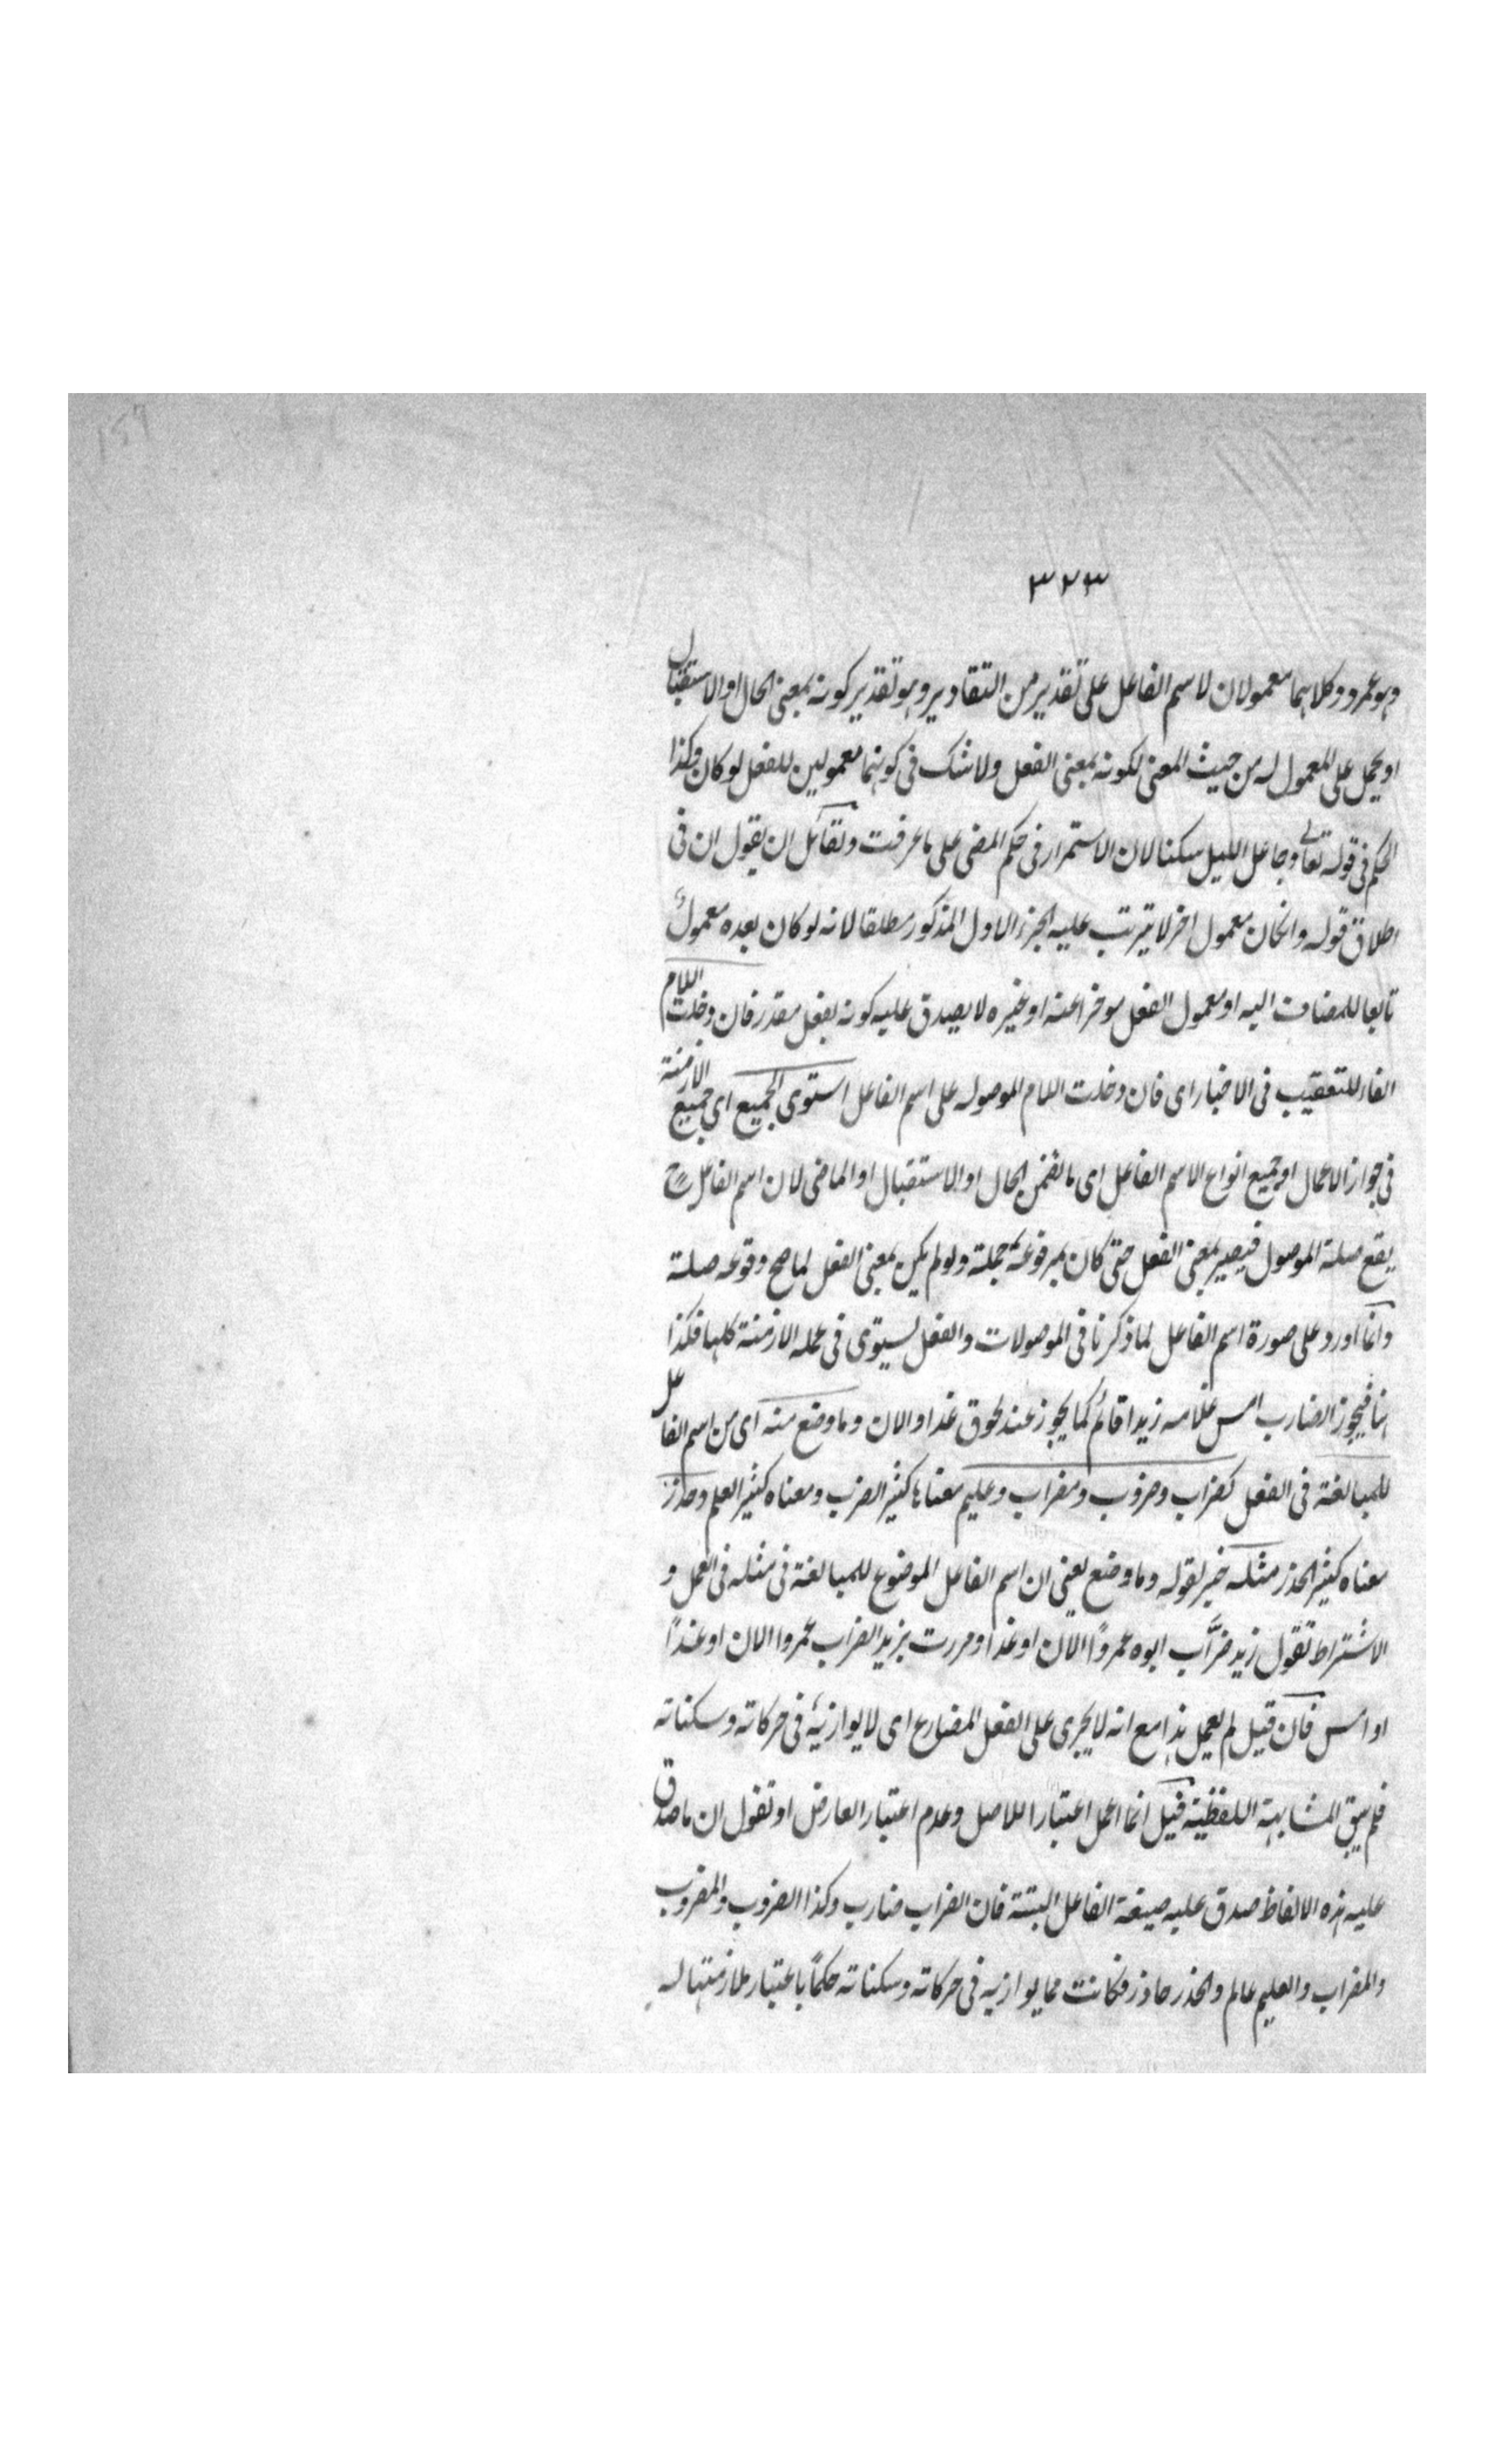 ٣٢٣
وهو عمرو وكلاهما معمولان لاسم الفاعل على تقدير من التقادير وهو تقدير كونه بمعنى الحال او الاستقبال
او يحمل على المعمول له من حيث المعنى لكونه بمعنى الفعل ولا شك فى كونهما معمولين للفعل لو كان وكذا
الحكم فى قوله تعالى وجاعل الليل سكنا لان الاستمرار فى حكم المضى على ما عرفت ولقائل ان يقول ان فى
اطلاق قوله وانكان معمول اخر لا يترتب عليه الجزء الاول المذكور مطلقا لانه لو كان بعده معمول
تابعا للمضاف اليه او معمول الفعل موخرا عنه او غيره لا يصدق عليه كونه بفعل مقدر فان دخلت اللام
الفاء للتعقيب فى الاخبار اى فان دخلت اللام الموصوله على اسم الفاعل استوى الجميع اى جميع الازمنة
فى جواز الاعمال او جميع انواع الاسم الفاعل اى ما تضمن الحال او الاستقبال او الماضى لان اسم الفاعل ح
يقع صلة الموصول فيصير بمعنى الفعل حتى كان بمرفوعه جملة ولو لم يكن بمعنى الفعل لما صح وقوعه صلة
وانما اورد على صورة اسم الفاعل لما ذكرنا فى الموصولات والفعل يستوى فى عمله الازمنة كلها فكذا
هنا فيجوز الضارب امس غلامه زيدا قائم كما يجوز عند لحوق غدا والان وما وضع منه اى من اسم الفاعل
للمبالغة فى الفعل كضراب وضروب ومضراب وعليم معناها كثير الضرب ومعناه كثير العلم وحذر
معناه كثير الحذر مثله خبر لقوله وما وضع يعنى ان اسم الفاعل الموضوع للمبالغة فى مثله فى العمل و
الاشتراط تقول زيد ضرَّاب ابوه عمروًا الان او غدا ومررت بزيد الضراب عمروا الان او غدًا
او امس فان قيل لم يعمل هذا مع انه لا يجرى على الفعل المضارع اى لا يوازيه فى حركاته وسكناته
فلم يبق المشابهة اللفظية قيل انما اعمل اعتبارا للاصل وعدم اعتبار العارض او تقول ان ما صدق
عليه هذه الالفاظ صدق عليه صيغة الفاعل البتة فان الضراب ضارب وكذا الضروب والمضروب
والمضراب والعليم عالم والحذر حاذر فكانت مما يوازيه فى حركاته وسكناته حكمًا باعتبار ملازمتها له